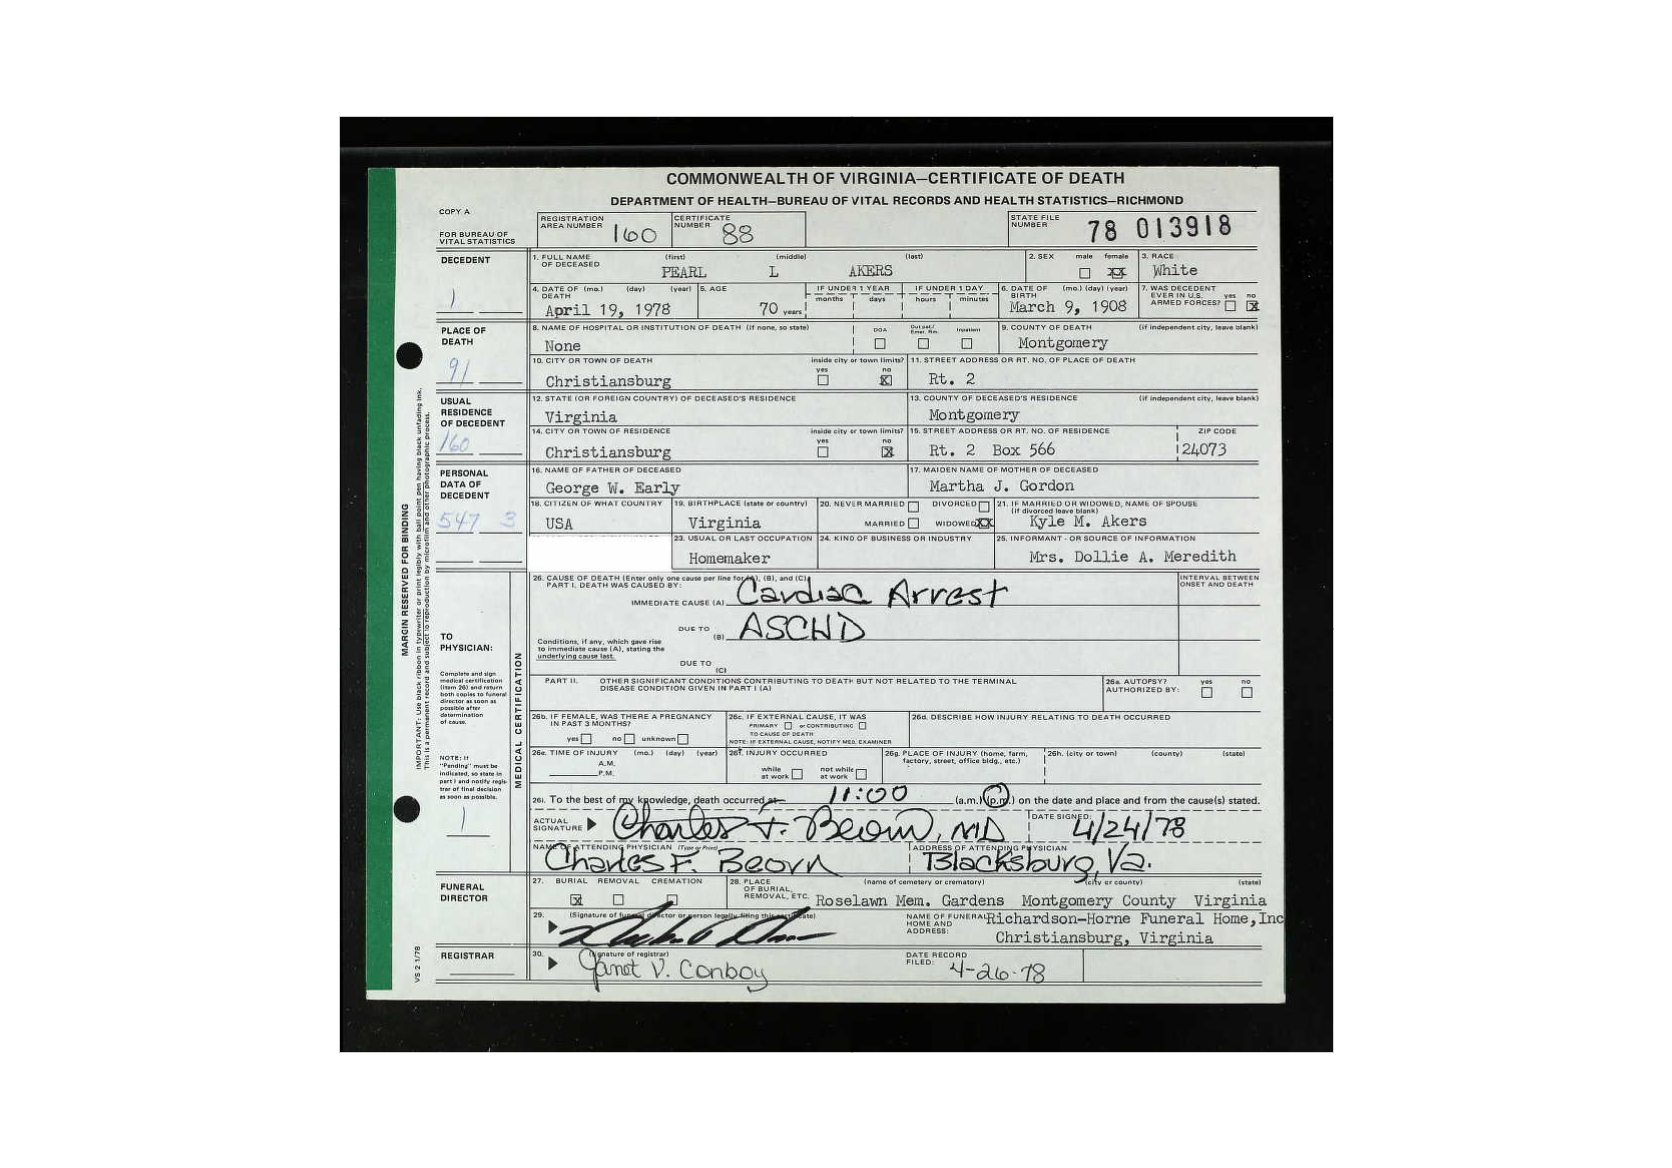 COMMONWEALTH OF VIRGINIA—CERTIFICATE OF DEATH
DEPARTMENT OF HEALTH—BUREAU OF VITAL RECORDS AND HEALTH STATISTICS—RICHMOND
COPY A
FOR BUREAU OF VITAL STATISTICS
REGISTRATION AREA NUMBER 160
CERTIFICATE NUMBER 88
STATE FILE NUMBER 78 013918
DECEDENT
1
1. FULL NAME OF DECEASED (first) (middle) (last)
PEARL L AKERS
2. SEX male female XX
3. RACE White
4. DATE OF DEATH (mo.) (day) (year)
April 19, 1978
5. AGE 70 years
IF UNDER 1 YEAR months days
IF UNDER 1 DAY hours minutes
6. DATE OF BIRTH (mo.) (day) (year)
March 9, 1908
7. WAS DECEDENT EVER IN U.S. ARMED FORCES? yes no X
PLACE OF DEATH
91
8. NAME OF HOSPITAL OR INSTITUTION OF DEATH (if none, so state)
None
DOA Out pat./ Emer. Rm. Inpatient
9. COUNTY OF DEATH (if independent city, leave blank)
Montgomery
10. CITY OR TOWN OF DEATH inside city or town limits? yes no X
Christiansburg
11. STREET ADDRESS OR RT. NO. OF PLACE OF DEATH
Rt. 2
USUAL RESIDENCE OF DECEDENT
160
12. STATE (OR FOREIGN COUNTRY) OF DECEASED'S RESIDENCE
Virginia
13. COUNTY OF DECEASED'S RESIDENCE (if independent city, leave blank)
Montgomery
14. CITY OR TOWN OF RESIDENCE inside city or town limits? yes no X
Christiansburg
15. STREET ADDRESS OR RT. NO. OF RESIDENCE ZIP CODE
Rt. 2 Box 566 24073
PERSONAL DATA OF DECEDENT
547 3
16. NAME OF FATHER OF DECEASED
George W. Early
17. MAIDEN NAME OF MOTHER OF DECEASED
Martha J. Gordon
18. CITIZEN OF WHAT COUNTRY
USA
19. BIRTHPLACE (state or country)
Virginia
20. NEVER MARRIED DIVORCED
MARRIED WIDOWED XX
21. IF MARRIED OR WIDOWED, NAME OF SPOUSE (if divorced leave blank)
Kyle M. Akers
23. USUAL OR LAST OCCUPATION
Homemaker
24. KIND OF BUSINESS OR INDUSTRY
25. INFORMANT - OR SOURCE OF INFORMATION
Mrs. Dollie A. Meredith
MARGIN RESERVED FOR BINDING
IMPORTANT: Use black ribbon in typewriter or print legibly with ball point pen having black unfading ink.
This is a permanent record and subject to reproduction by microfilm and other photographic process.
TO PHYSICIAN:
Complete and sign medical certification (Item 26) and return both copies to funeral director as soon as possible after determination of cause.
NOTE: If "Pending" must be indicated, so state in part I and notify registrar of final decision as soon as possible.
1
MEDICAL CERTIFICATION
26. CAUSE OF DEATH (Enter only one cause per line for (A), (B), and (C))
PART I. DEATH WAS CAUSED BY:
INTERVAL BETWEEN ONSET AND DEATH
IMMEDIATE CAUSE (A) Cardiac Arrest
DUE TO (B) ASCHD
Conditions, if any, which gave rise to immediate cause (A), stating the underlying cause last.
DUE TO (C)
PART II. OTHER SIGNIFICANT CONDITIONS CONTRIBUTING TO DEATH BUT NOT RELATED TO THE TERMINAL DISEASE CONDITION GIVEN IN PART I (A)
26a. AUTOPSY? AUTHORIZED BY: yes no
26b. IF FEMALE, WAS THERE A PREGNANCY IN PAST 3 MONTHS?
yes no unknown
26c. IF EXTERNAL CAUSE, IT WAS
PRIMARY or CONTRIBUTING
TO CAUSE OF DEATH
NOTE: IF EXTERNAL CAUSE, NOTIFY MED. EXAMINER
26d. DESCRIBE HOW INJURY RELATING TO DEATH OCCURRED
26e. TIME OF INJURY (mo.) (day) (year)
A.M.
P.M.
26f. INJURY OCCURRED
while at work not while at work
26g. PLACE OF INJURY (home, farm, factory, street, office bldg., etc.)
26h. (city or town) (county) (state)
26i. To the best of my knowledge, death occurred at 11:00 (a.m.) (p.m.) on the date and place and from the cause(s) stated.
ACTUAL SIGNATURE Charles F. Beorn, MD
DATE SIGNED: 4/24/78
NAME OF ATTENDING PHYSICIAN (Type or Print)
Charles F. Beorn
ADDRESS OF ATTENDING PHYSICIAN
Blacksburg, Va.
FUNERAL DIRECTOR
27. BURIAL REMOVAL CREMATION
X
28. PLACE OF BURIAL, REMOVAL, ETC. (name of cemetery or crematory) (city or county) (state)
Roselawn Mem. Gardens Montgomery County Virginia
29. (Signature of funeral director or person legally filing this certificate)
NAME OF FUNERAL HOME AND ADDRESS: Richardson-Horne Funeral Home, Inc
Christiansburg, Virginia
REGISTRAR
30. (signature of registrar)
Janet V. Conboy
DATE RECORD FILED: 4-26-78
VS 2 1/78